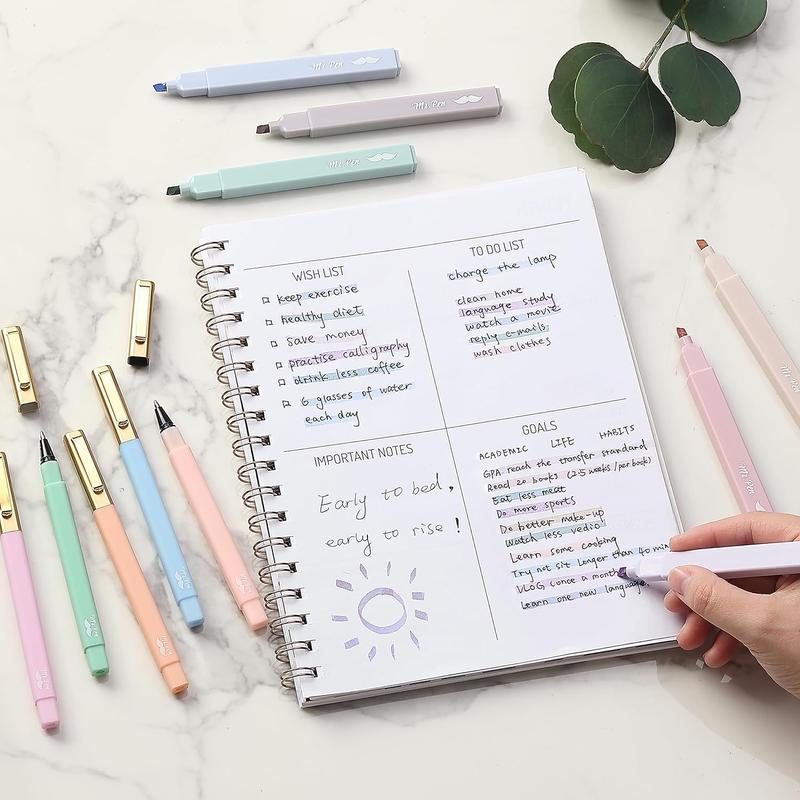 Mr. Pen
Mr. Pen
Mr. Pen
WISH LIST
keep exercise
healthy diet
save money
practise calligraphy
drink less coffee
6 glasses of water
each day
TO DO LIST
charge the lamp
clean home
language study
watch a movie
reply e-mails
wash clothes
IMPORTANT NOTES
Early to bed,
early to rise!
GOALS
ACADEMIC LIFE HABITS
GPA reach the transfer standard
Read 20 books (2.5 weeks/per book)
Eat less meat
Do more sports
Do better make-up
Watch less vedio
Learn some cooking
Try not sit longer than 40 min
VLOG (once a month
Learn one new language
Mr. Pen